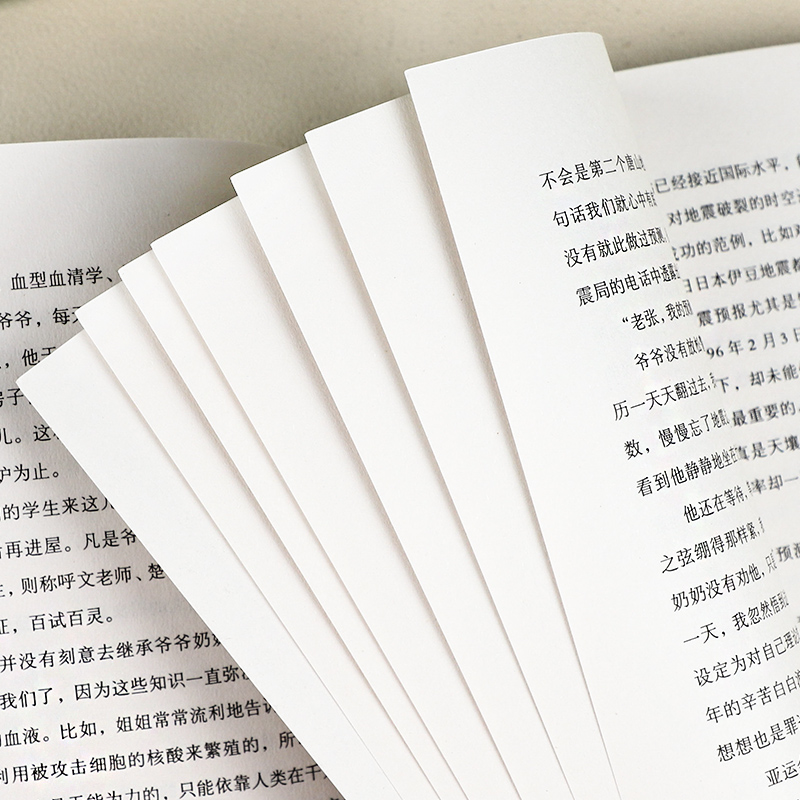 血型血清学、
爷爷,每天
,他
房子
儿。这
户为止。
的学生来这儿
后再进屋。凡是爷
,则称呼文老师、楚
证,百试百灵。
并没有刻意去继承爷爷奶奶
我们了,因为这些知识一直弥
血液。比如,姐姐常常流利地告诉
利用被攻击细胞的核酸来繁殖的,所
无能为力的,只能依靠人类在千
不会是第二个唐山
句话我们就心中有
没有就此做过预测
震局的电话中透露
“老张,我的预
爷爷没有放松
历一天天翻过去,
数,慢慢忘了地震
看到他静静地坐在
他还在等待,
之弦绷得那样紧,
奶奶没有劝他,只
一天,我忽然悟到
设定为对自己理论
年的辛苦白白
想想也是罪
亚运
已经接近国际水平,
对地震破裂的时空
成功的范例,比如
日本伊豆地震都
震预报尤其是
96年2月3日
下,却未能
最重要的
真是天壤
率却一
预测